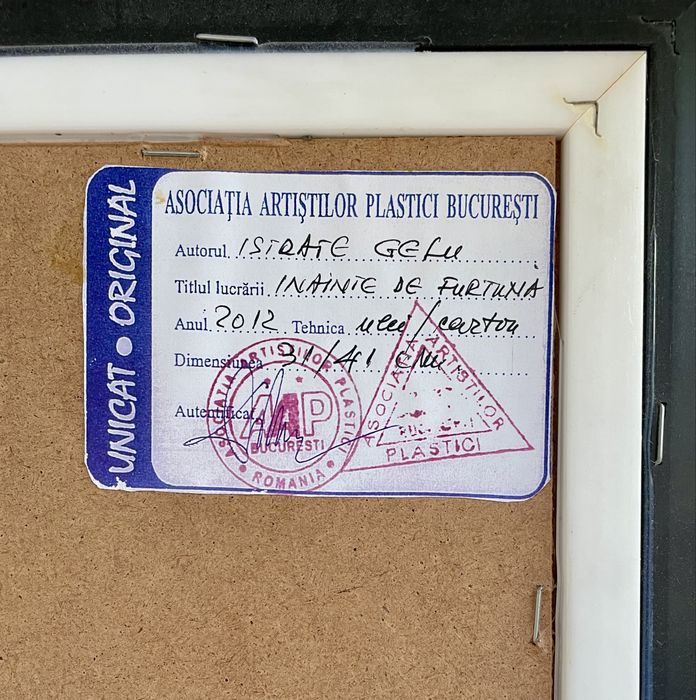 UNICAT • ORIGINAL
ASOCIAŢIA ARTIŞTILOR PLASTICI BUCUREŞTI
Autorul ISTRATE GELU
Titlul lucrării INAINTE DE FURTUNA
Anul 2012 Tehnica ulei/carton
Dimensiunea 31/41 cm.
Autentificat
ASOCIAŢIA ARTIŞTILOR PLASTICI
AAP
BUCUREŞTI
• ROMANIA •
ASOCIAŢIA ARTIŞTILOR PLASTICI
BUCUREŞTI